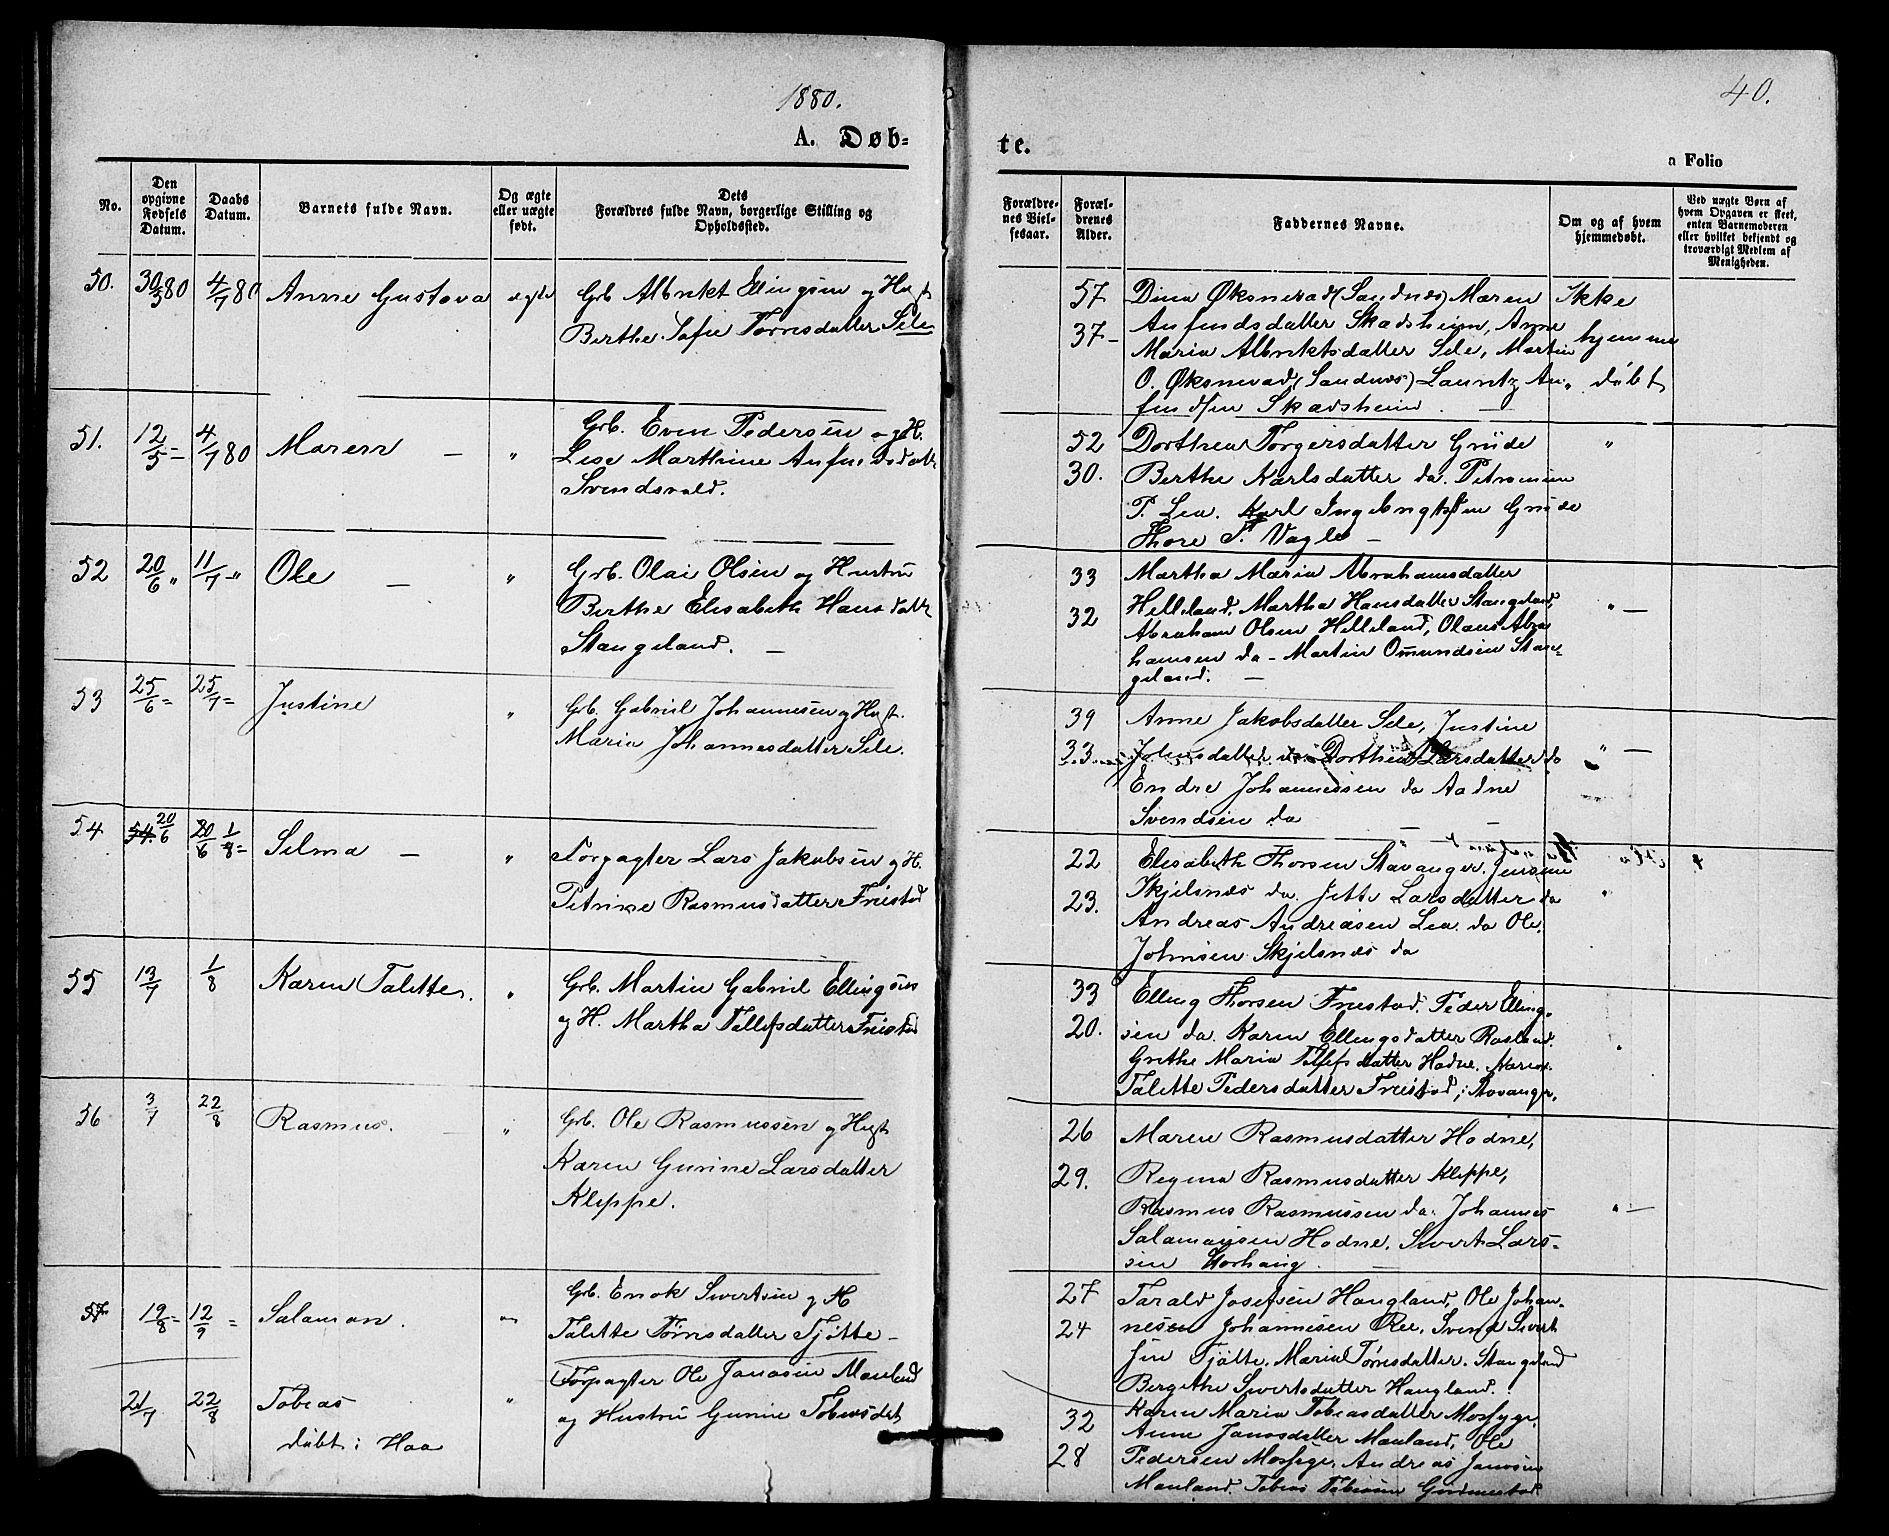 1880.
40.
A. Døb-
te.
a Folio
No.
Den
opgivne
Fødsels
Datum.
Daabs
Datum.
Barnets fulde Navn.
Og ægte
eller uægte
født.
Dets
Forældres fulde Navn, borgerlige Stilling og
Opholdssted.
Forældre-
nes Viel-
sesaar.
Foræl-
drenes
Alder.
Faddernes Navne.
Om og af hvem
hjemmedøbt.
Ved uægte Børn af
hvem Opgaven er skeet,
enten Barnemoderen
eller hvilket bekjendt og
troværdigt Medlem af
Menigheden.
50. 30/5 80 4/7 80 Anne Gustava ægte Grb Albrikt Elingsen og Hust
Berthe Sofie Tørresdatter Sele
57 Dina Øksnevad (Sandnes) Maren Ikke
37- Anfindsdatter Skadsheim, Anne hjemme
Maria Albriktsdatter Sele, Martin
O. Øksnevad (Sandnes) Lauritz An- døbt
findsen Skadsheim.
51. 12/5 = 4/7 80 Maren — " Grb. Even Pedersen og H.
Lise Marthine Anfindsdatt
Svendsvold.
52 Dorthea Torgersdatter Grude "
30. Berthe Karlsdatter do. Petronine
P. Lea. Karl Ingebrigtsen Grude
Thore T. Vagle —
52 20/6 " 11/7 " Ole — " Grb. Olai Olsen og Hustru
Berthe Elisabeth Hansdatt
Stangeland. —
33 Martha Maria Abrahamsdatter
32 Helleland, Martha Hansdatter Stangeland, " —
Abraham Olsen Helleland, Olaus Abra
hamsen do - Martin Omundsen Stan-
geland. —
53 25/6 = 25/7 = Justine " Grb. Gabriel Johannesen og Hust.
Maria Johannesdatter Sele.
39 Anne Jakobsdatter Sele, Justine
33 Johnsdatter do Dorthea Larsdatter do " —
Endre Johannessen do Aadne
Svendsen do — —
54 54. 20/6 20/6 1/8 = Selma — " Forpagter Lars Jakobsen og H.
Petrine Rasmusdatter Friestad
22 Elisabeth Thorsen Stavanger. Jensine
23. Skjelsnæs do. Jitte Larsdatter do "
Andreas Andreasen Lea. do Ole
Johnsen Skjelsnæs do
55 13/7 1/8 Karen Talette. " Grb. Martin Gabriel Ellingsen
og H. Martha Tollefsdatter Friestad
33 Elling Thorsen Friestad. Peder Elling-
20. sen do. Karen Ellingsdatter Rosland.
Grethe Maria Tollefsdatter Hodne. Karen
Talette Pedersdatter Friestad, i Stavanger.
56 3/7 22/8 Rasmus. — " Grb. Ole Rasmussen og Hust
Karen Gurine Larsdatter
Kleppe.
26 Maren Rasmusdatter Hodne,
29. Regina Rasmusdatter Kleppe,
Rasmus Rasmussen do. Johannes " —
Salamonsen Hodne. Sivert Lars-
sen Horhaug. —
57 19/8 = 12/9 = Salamon. " Grb. Enok Sivertsen og H
Talette Tørresdatter Tjøtte —
27 Tarald Josefsen Haugland, Ole Johan-
24 nesen Johannesen Ree. Svend Sivert
sen Tjøtte. Maria Tørresdatter. Stangeland
Bergithe Sivertsdatter Haugland.
21/7 22/8 Tobias " Forpagter Ole Jonassen Mauland
døbt i Haa og Hustru Gurine Tobiasdat
32 Karen Maria Tobiasdatter Mossige.
Anne Jonasdatter Mauland, Ole
28 Pedersen Mossige. Andreas Jonassen
Mauland. Tobias Tobiasen Gudmestad